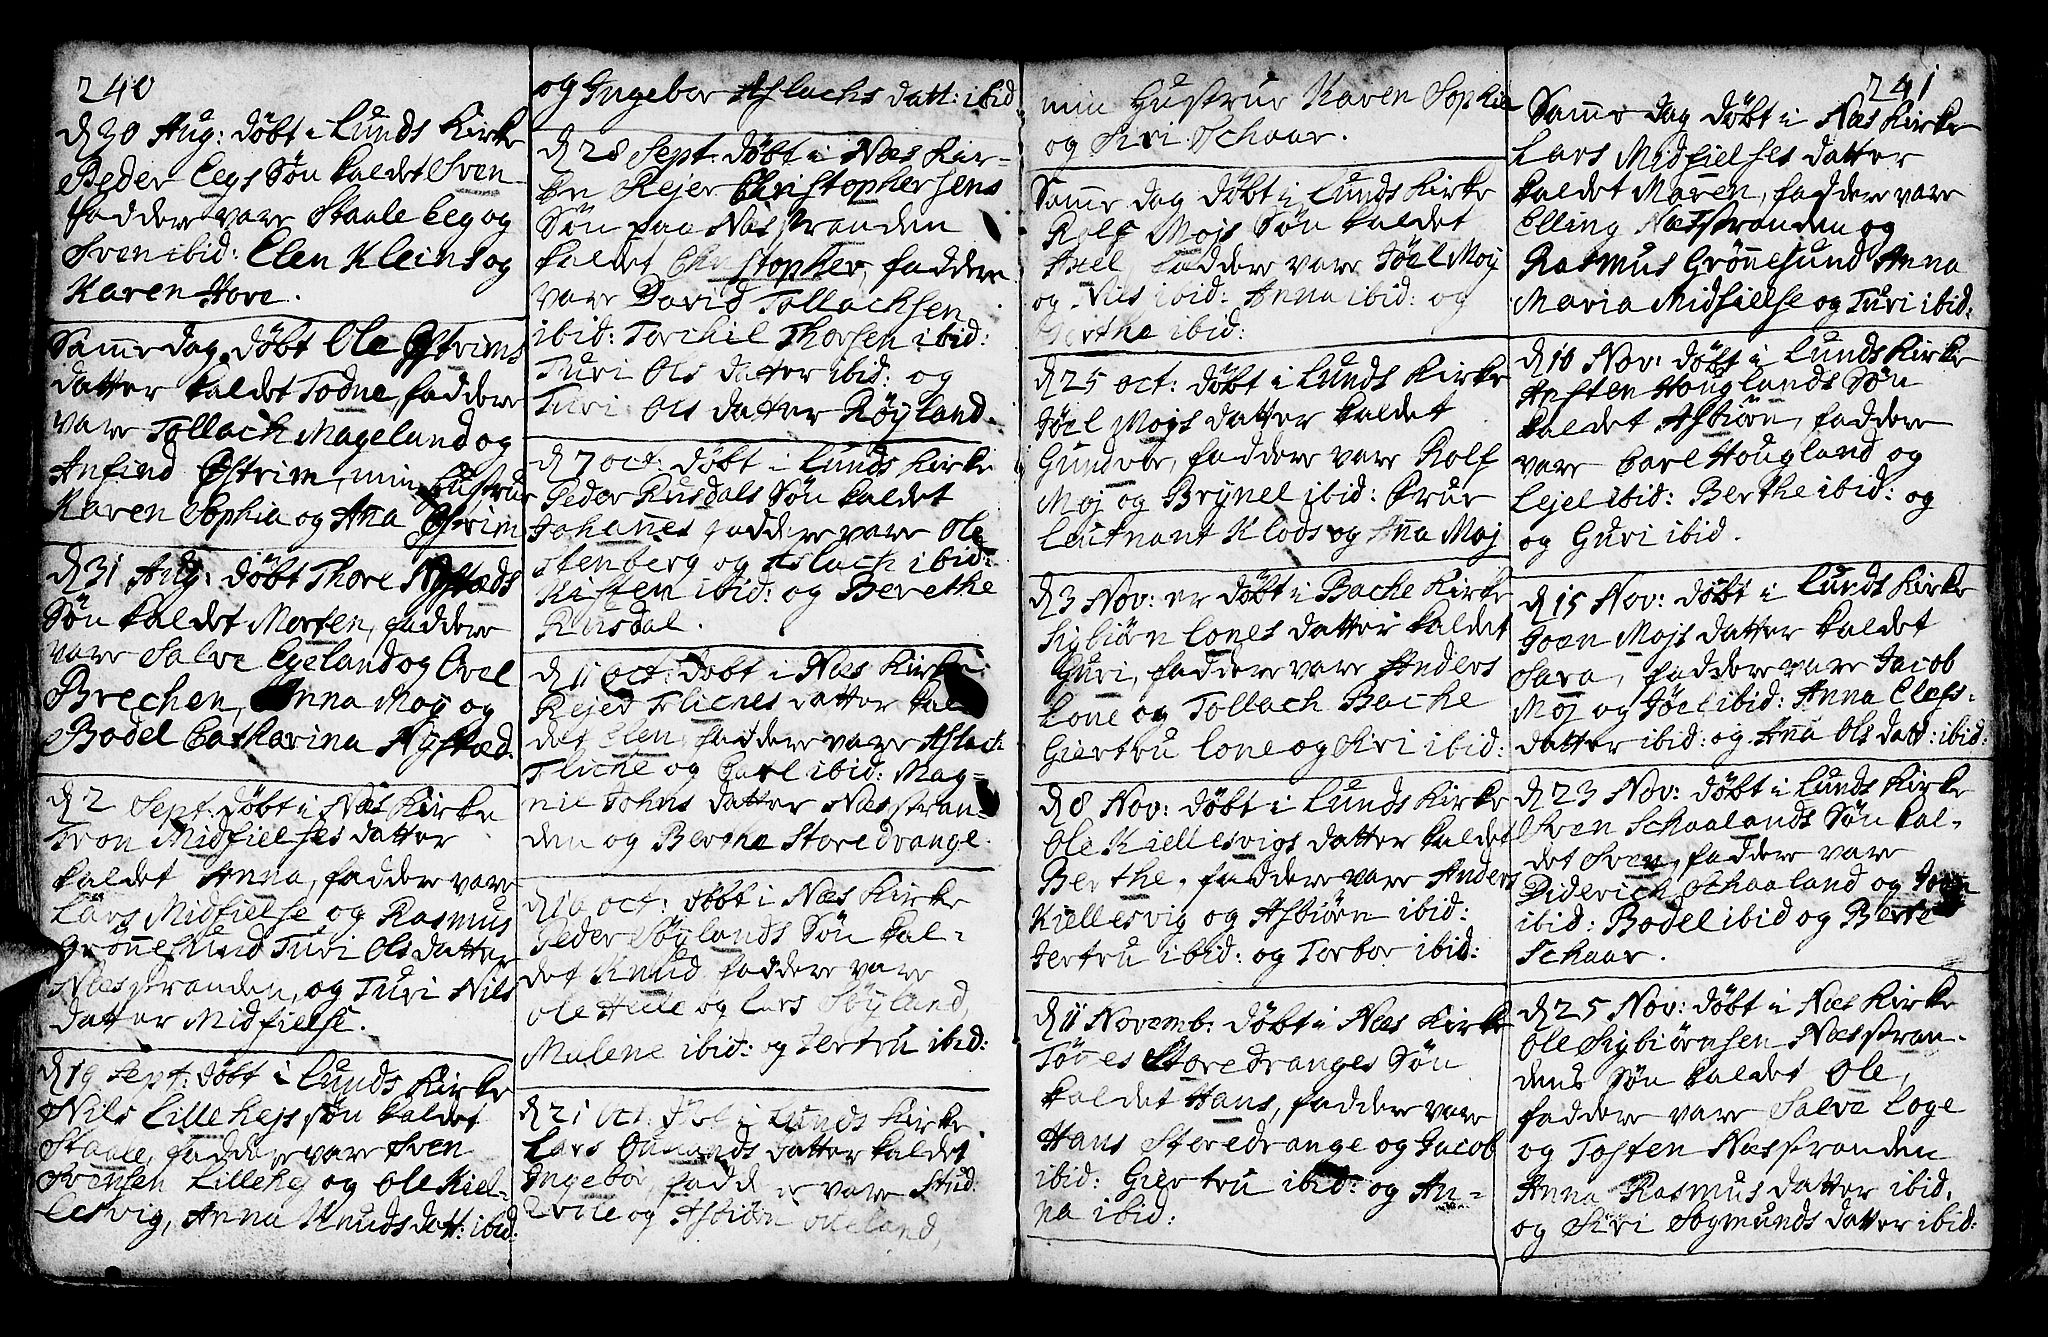 240
d 30 Aug: döbt i Lunds Kirke
Peder Eegs Sön kaldet Sven
faddere vare Staale Eeg og
Sven ibid: Elen Kleins og
Karen Hove.
Samme dag döbt Ole Østrims
datter kaldet Todne, faddere
vare Tollach Mageland og
Anfind Østrim, min Hustrue
Karen Sophia og Ana Østrim
d 31 Aug: döbt Thore Nystæds
Sön kaldet Morten, faddere
vare Salve Egeland og Ovel
Brechen, Anna Moy og
Bodel Catharina Nystæd.
d 2 Sept: döbt i Næs Kirke
Tron Midfielses datter
kaldet Anna, faddere vare
Lars Midfielse og Rasmus
Grönnesund Turi Olsdatter
Næsstranden, og Turi Nils
datter Midfielse.
d 19 Sept: döbt i Lunds Kirke
Nils Lillehejs sön kaldet
Staale, faddere vare Sven
Svensen Lillehej og Ole Kiel-
lesvig, Anna Knuds datt: ibid:
og Ingebor Aslachs datt: ibid
d 28 Sept: döbt i Næs Kir-
ke Rejer Christophersens
Sön paa Næsstranden
kaldet Christopher, faddere
vare David Tollachsen
ibid: Torchil Thorsen ibid:
Turi Ols datter ibid: og
Turi Ols datter Röyland.
d 7 oct: döbt i Lunds Kirke
Peder Rusdals Sön kaldet
Johannes faddere vare Ole
Stenberg og Aslach ibid:
Kisten ibid: og Berethe
Rusdal.
d 11 oct: döbt i Næs Kirke
Rejed Flicnes datter kal
det Elen, faddere vare Aslach
Fliche og Carl ibid: Mag-
nie Johns datter Næsstran-
den og Berthe Storedrange.
d 10 oct: döbt i Næs Kirke
Peder Söylands Sön kal-
det Knud faddere vare
Ole Helle og Lars Söyland,
Malene ibid: og Jertru ibid:
d 21 Oct: i Lunds Kirke
Lars datter kaldet
Ingebor, fadd er vare Stud.
og Asbiörn
min Hustrue Karen Sophia
og Siri Schaar.
Samme dag döbt i Lunds Kirke
Rolf Mojs Sön kaldet
Axel, faddere vare Jöel Moj
og Nils ibid: Anna ibid: og
Berthe ibid:
d 25 oct: döbt i Lunds Kirke
Jöel Mojs datter kaldet
Gundvor, faddere vare Rolf
Moj og Brynel ibid: Frue
Leutnant Klods og Anna Moj
d 3 Nov: er döbt i Bache Kirke
Sigbiörn Lones datter kaldet
Guri, faddere vare Anders
Lone og Tollach Bache
Giertru Lone og Siri ibid:
d 8 Nov: döbt i Lunds Kirke
Ole Kiellesvigs datter kaldet
Berthe, faddere vare Anders
Kiellesvig og Asbiörn ibid:
Jertru ibid: og Torbor ibid:
d 11 Novemb: döbt i Næs Kirke
Tönes Storedranges Sön
kaldet Hans, faddere vare
Hans Storedrange og Jacob
ibid: Giertru ibid: og An-
na ibid:
241
Samme dag döbt i Næs Kirke
Lars Midfielses datter
kaldet Maren, faddere vare
Elling Næsstranden og
Rasmus Grönnesund Anna
Maria Midfielse og Turi ibid:
d 10 Nov: döbt i Lunds Kirke
Ansten Houglands Sön
kaldet Asbiörn, faddere
vare Carl Hougland og
Lejel ibid: Berthe ibid: og
og Guri ibid.
d 15 Nov: döbt i Lunds Kirke
Joen Mojs datter kaldet
Sara, faddere vare Jacob
Moj og Jöel ibid: Anna Elefs-
datter ibid: og Anna Ols datt: ibid:
d 23 Nov: döbt i Lunds Kirke
Sven Schaalands Sön kal-
det Sven, faddere vare
Diderich Schaaland og Joen
ibid: Bodel ibid og Berte
Schaar.
d 25 Nov: döbt i Næs Kirke
Ole Sigbiörnsen Næsstran-
dens Sön kaldet Ole,
faddere vare Salve Loge
og Tosten Næsstranden
Anna Rasmus datter ibid.
og Siri Sogmunds datter ibid: